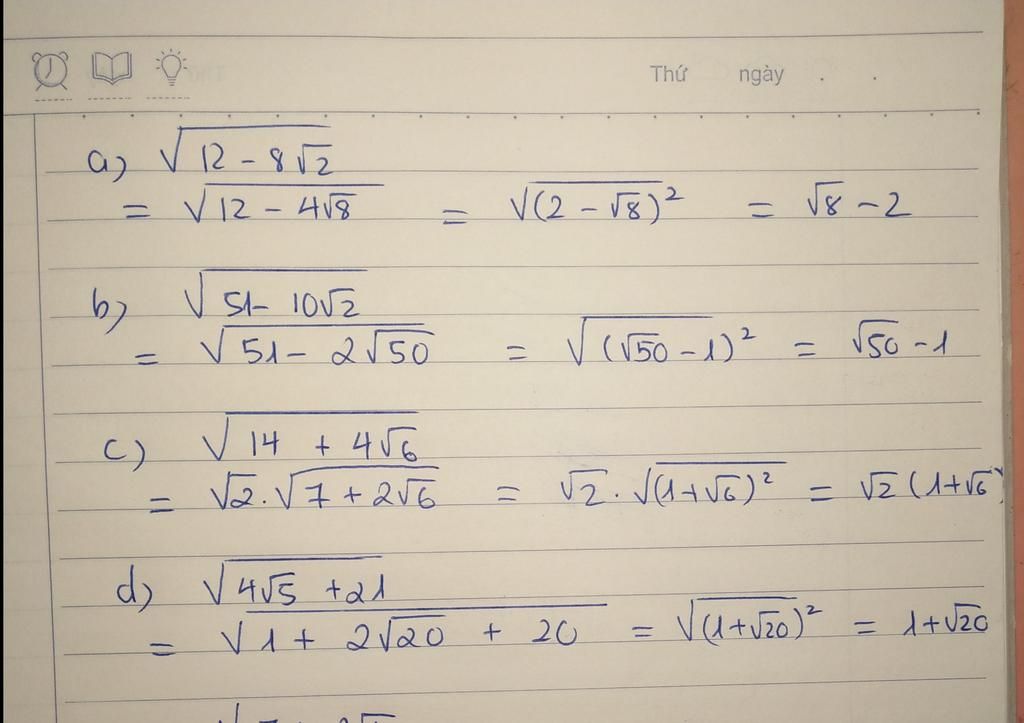 Thứ ngày . .
a) √(12 - 8√2)
= √(12 - 4√8) = √((2 - √8)²) = √8 - 2
b) √(51 - 10√2)
= √(51 - 2√50) = √((√50 - 1)²) = √50 - 1
c) √(14 + 4√6)
= √2 . √(7 + 2√6) = √2 . √((1+√6)²) = √2 (1+√6)
d) √(4√5 + 21)
= √(1 + 2√20 + 20) = √((1+√20)²) = 1+√20